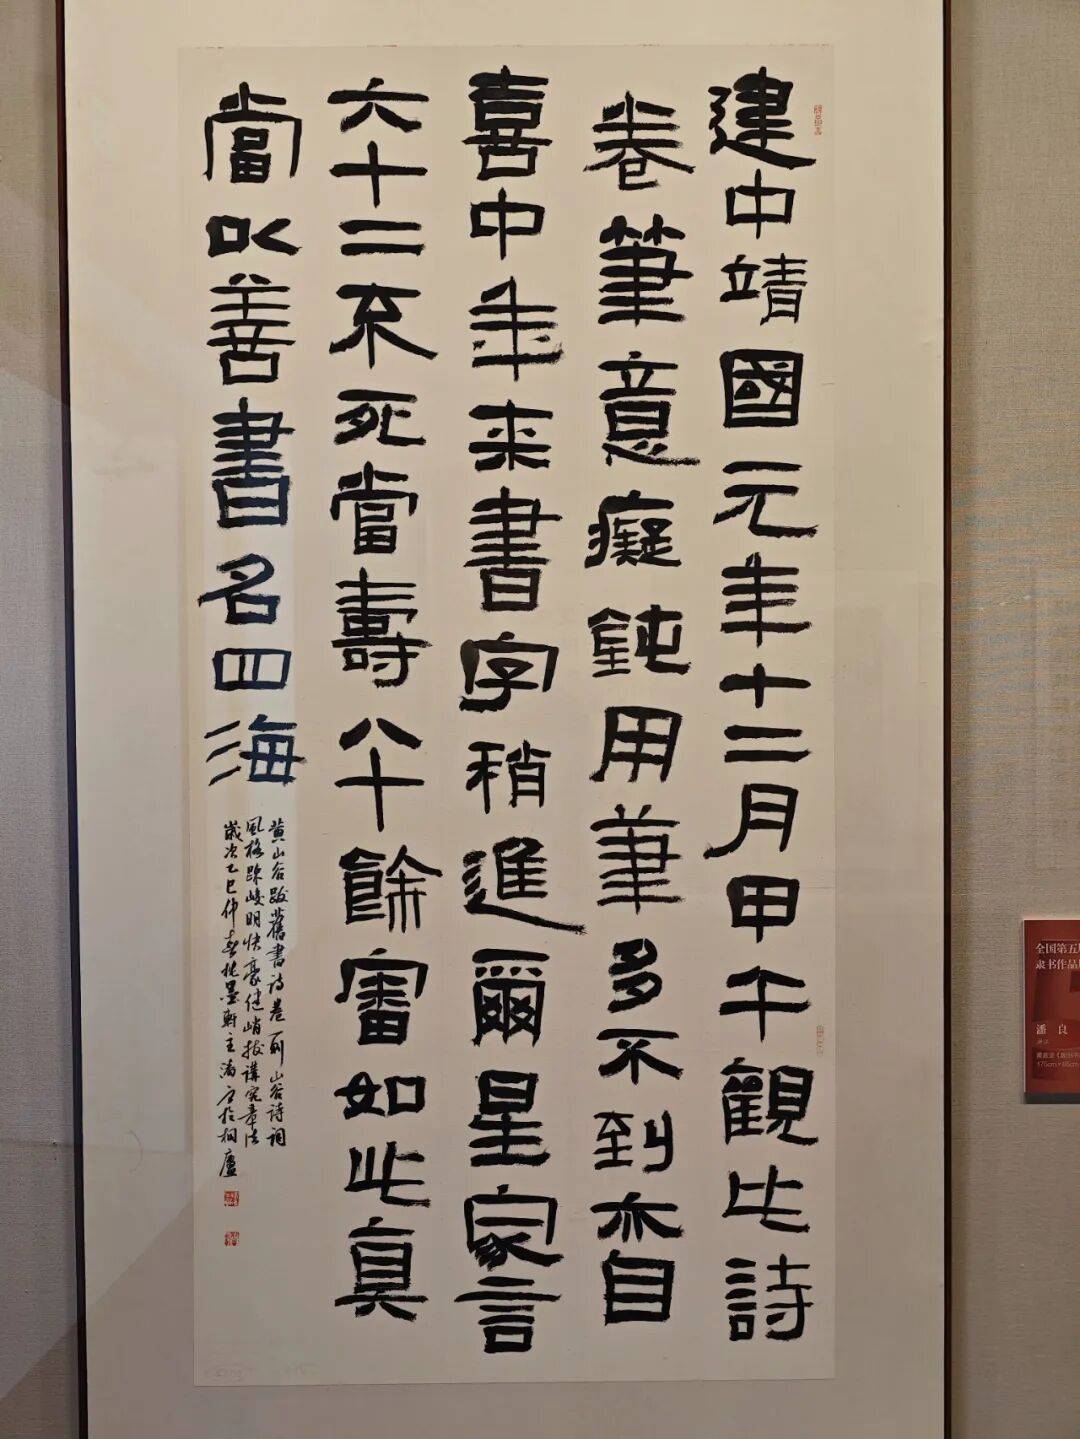 建中靖國元年十二月甲午觀此詩
卷筆意癡鈍用筆多不到亦自
喜中年来書字稍進爾星家言
六十二不死當壽八十餘審如此真
當以善書名四海
黄山谷跋舊書詩卷一則山谷詩詞
風格踈峻明快豪健峭拔講究章法
歲次乙巳仲春於墨軒主潘方於桐廬
全国第五
隶书作品
潘良